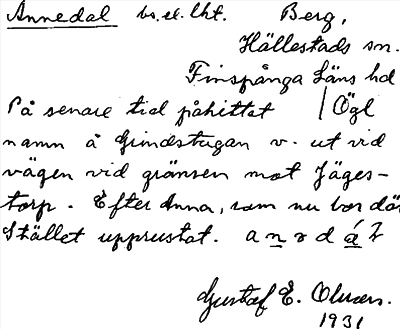 Annedal bs. el. lht. Berg,
Hällestads sn.
Finspånga Läns hd
På senare tid påhittat / Ögl
namn å Grindstugan v. ut vid
vägen vid gränsen mot Jäges-
torp. Efter Anna, som nu bor där
Stället upprustat.
Gustaf E.
1931